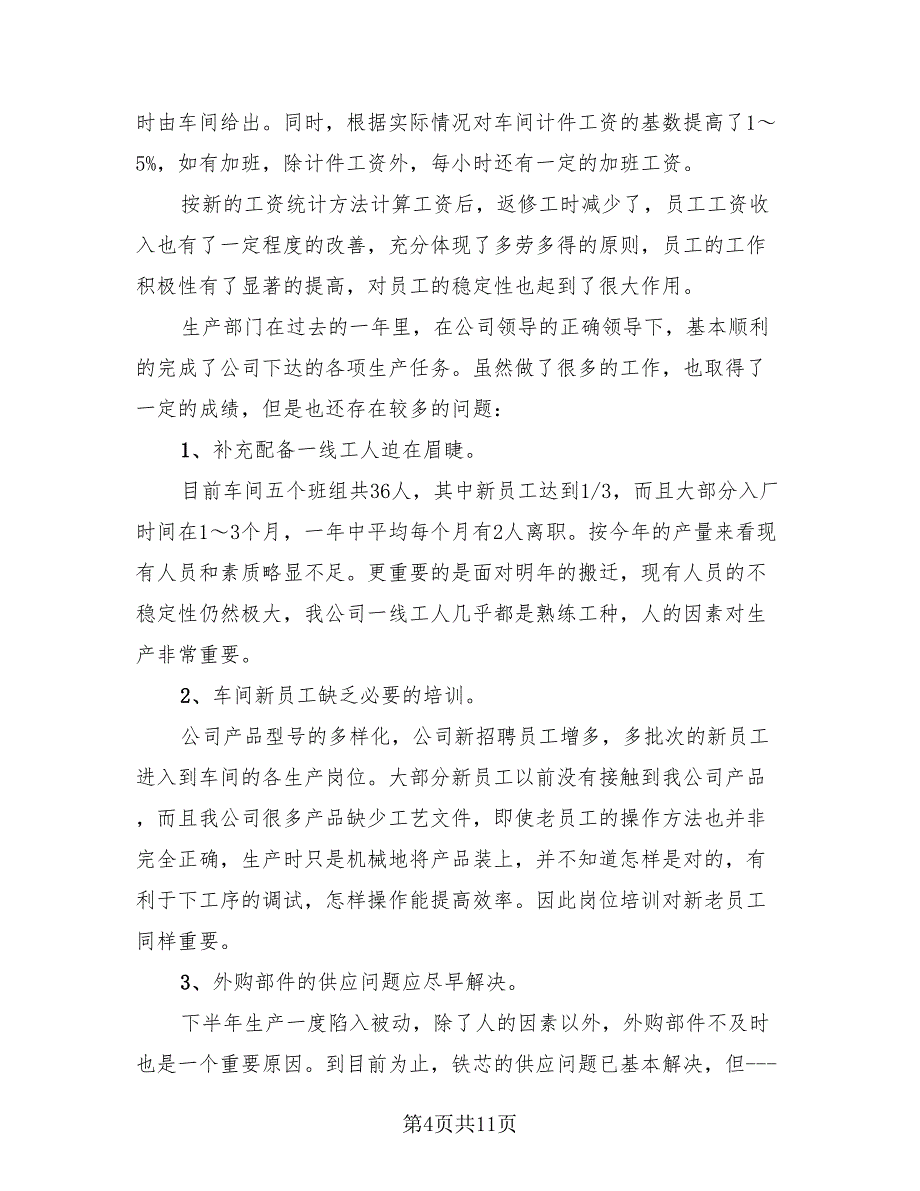 时由车间给出。同时，根据实际情况对车间计件工资的基数提高了1～
5%，如有加班，除计件工资外，每小时还有一定的加班工资。
按新的工资统计方法计算工资后，返修工时减少了，员工工资收
入也有了一定程度的改善，充分体现了多劳多得的原则，员工的工作
积极性有了显著的提高，对员工的稳定性也起到了很大作用。
生产部门在过去的一年里，在公司领导的正确领导下，基本顺利
的完成了公司下达的各项生产任务。虽然做了很多的工作，也取得了
一定的成绩，但是也还存在较多的问题：
1、补充配备一线工人迫在眉睫。
目前车间五个班组共36人，其中新员工达到1/3，而且大部分入厂
时间在1～3个月，一年中平均每个月有2人离职。按今年的产量来看现
有人员和素质略显不足。更重要的是面对明年的搬迁，现有人员的不
稳定性仍然极大，我公司一线工人几乎都是熟练工种，人的因素对生
产非常重要。
2、车间新员工缺乏必要的培训。
公司产品型号的多样化，公司新招聘员工增多，多批次的新员工
进入到车间的各生产岗位。大部分新员工以前没有接触到我公司产品
，而且我公司很多产品缺少工艺文件，即使老员工的操作方法也并非
完全正确，生产时只是机械地将产品装上，并不知道怎样是对的，有
利于下工序的调试，怎样操作能提高效率。因此岗位培训对新老员工
同样重要。
3、外购部件的供应问题应尽早解决。
下半年生产一度陷入被动，除了人的因素以外，外购部件不及时
也是一个重要原因。到目前为止，铁芯的供应问题已基本解决，但---
第4页共11页